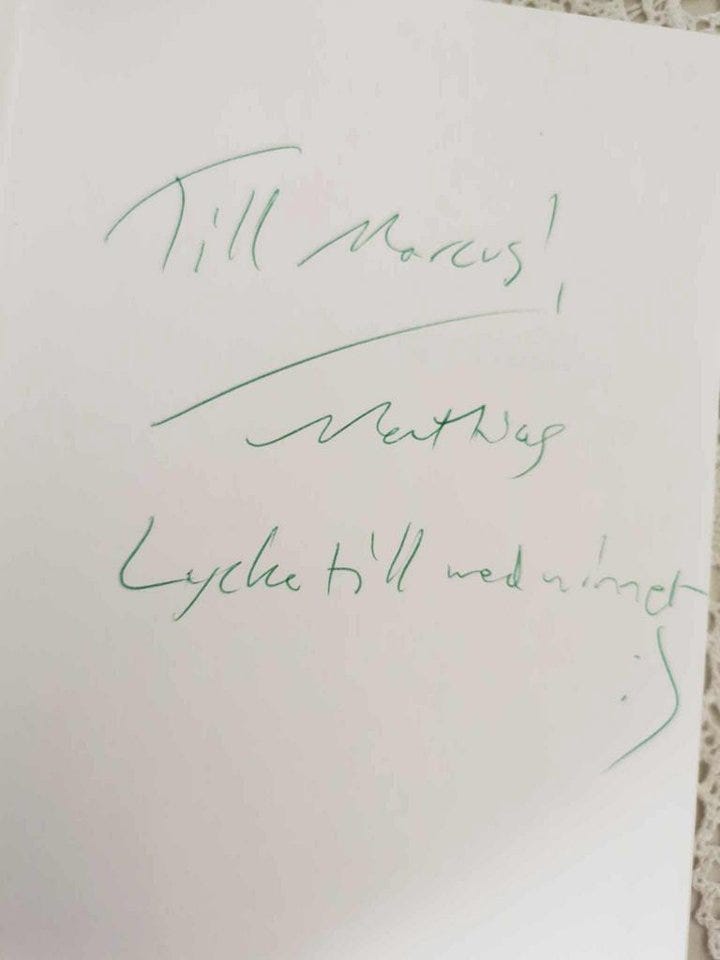 Till Marcus!
Mathias
Lycka till med minnet
:)